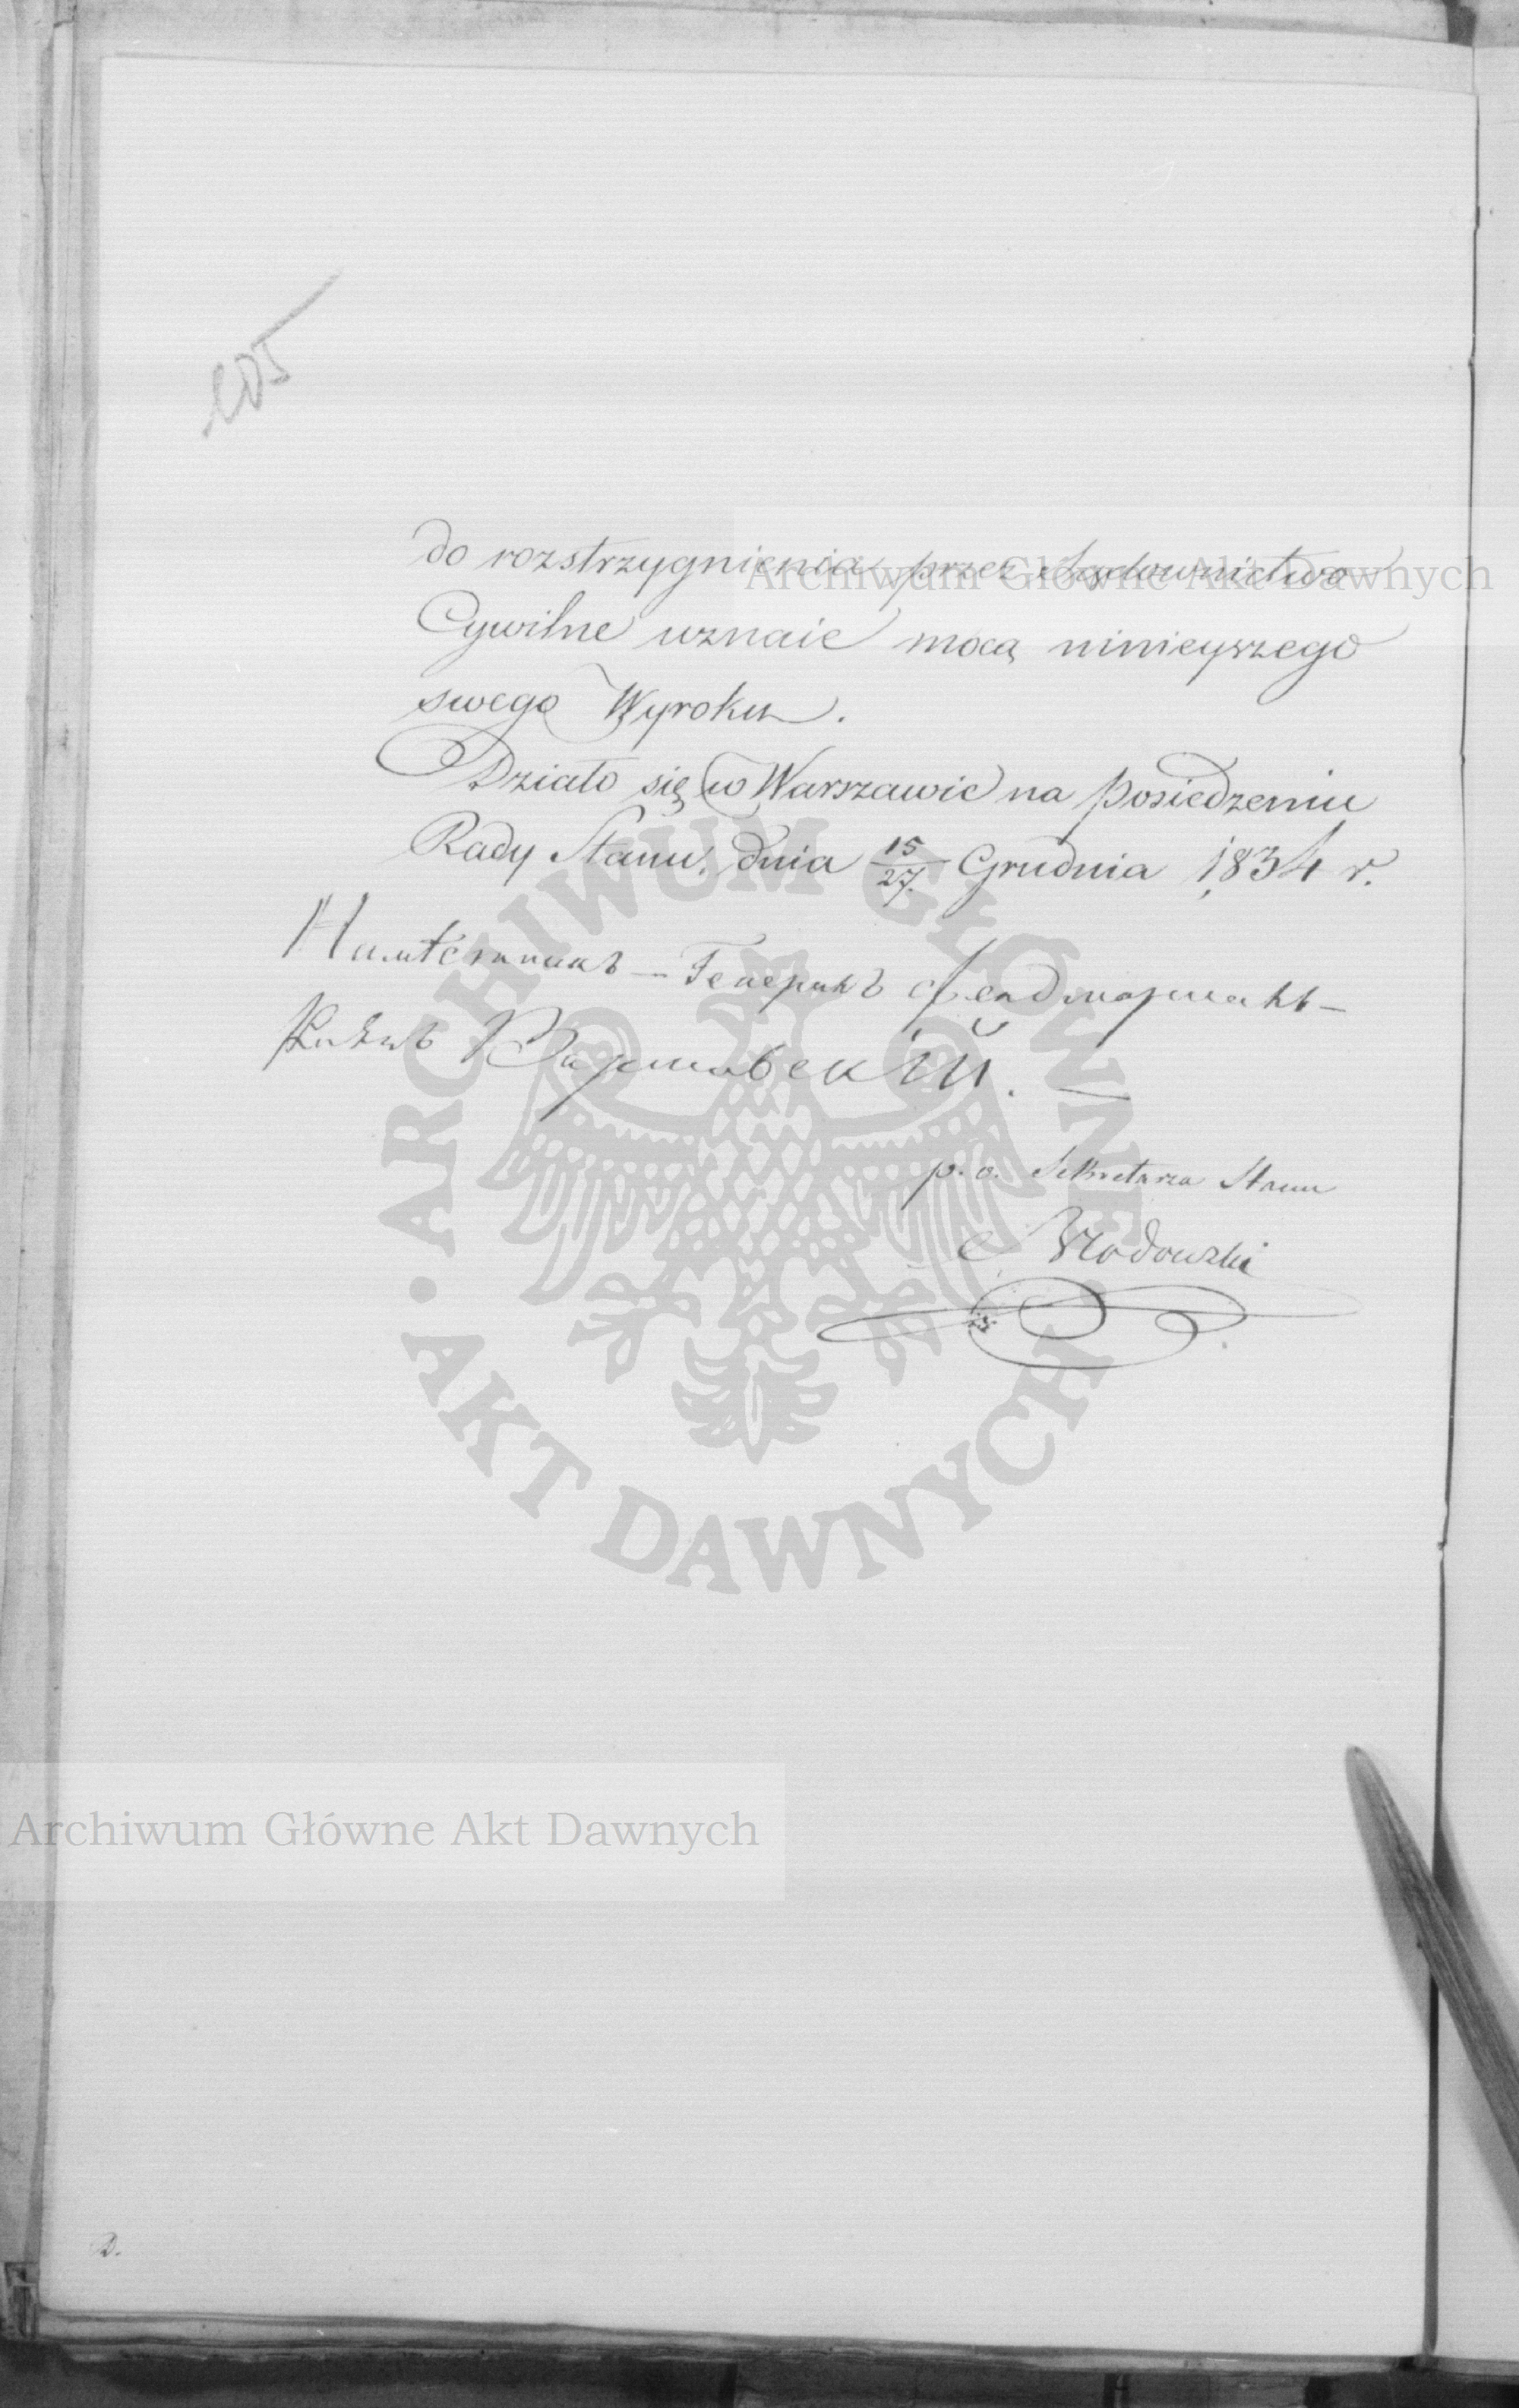 105
do rozstrzygnienia przez Sądownictwo
Cywilne uznaie mocą ninieyszego
swego Wyroku.
Działo się w Warszawie na posiedzeniu
Rady Stanu, dnia 15/27 Grudnia 1834 r.
Намѣстникъ – Генералъ Фелдмаршалъ –
Князь Варшавскій. —
p. o. Sekretarza Stanu
Brodowski
D.
Archiwum Główne Akt Dawnych
ARCHIWUM GŁÓWNE • AKT DAWNYCH •
Archiwum Główne Akt Dawnych